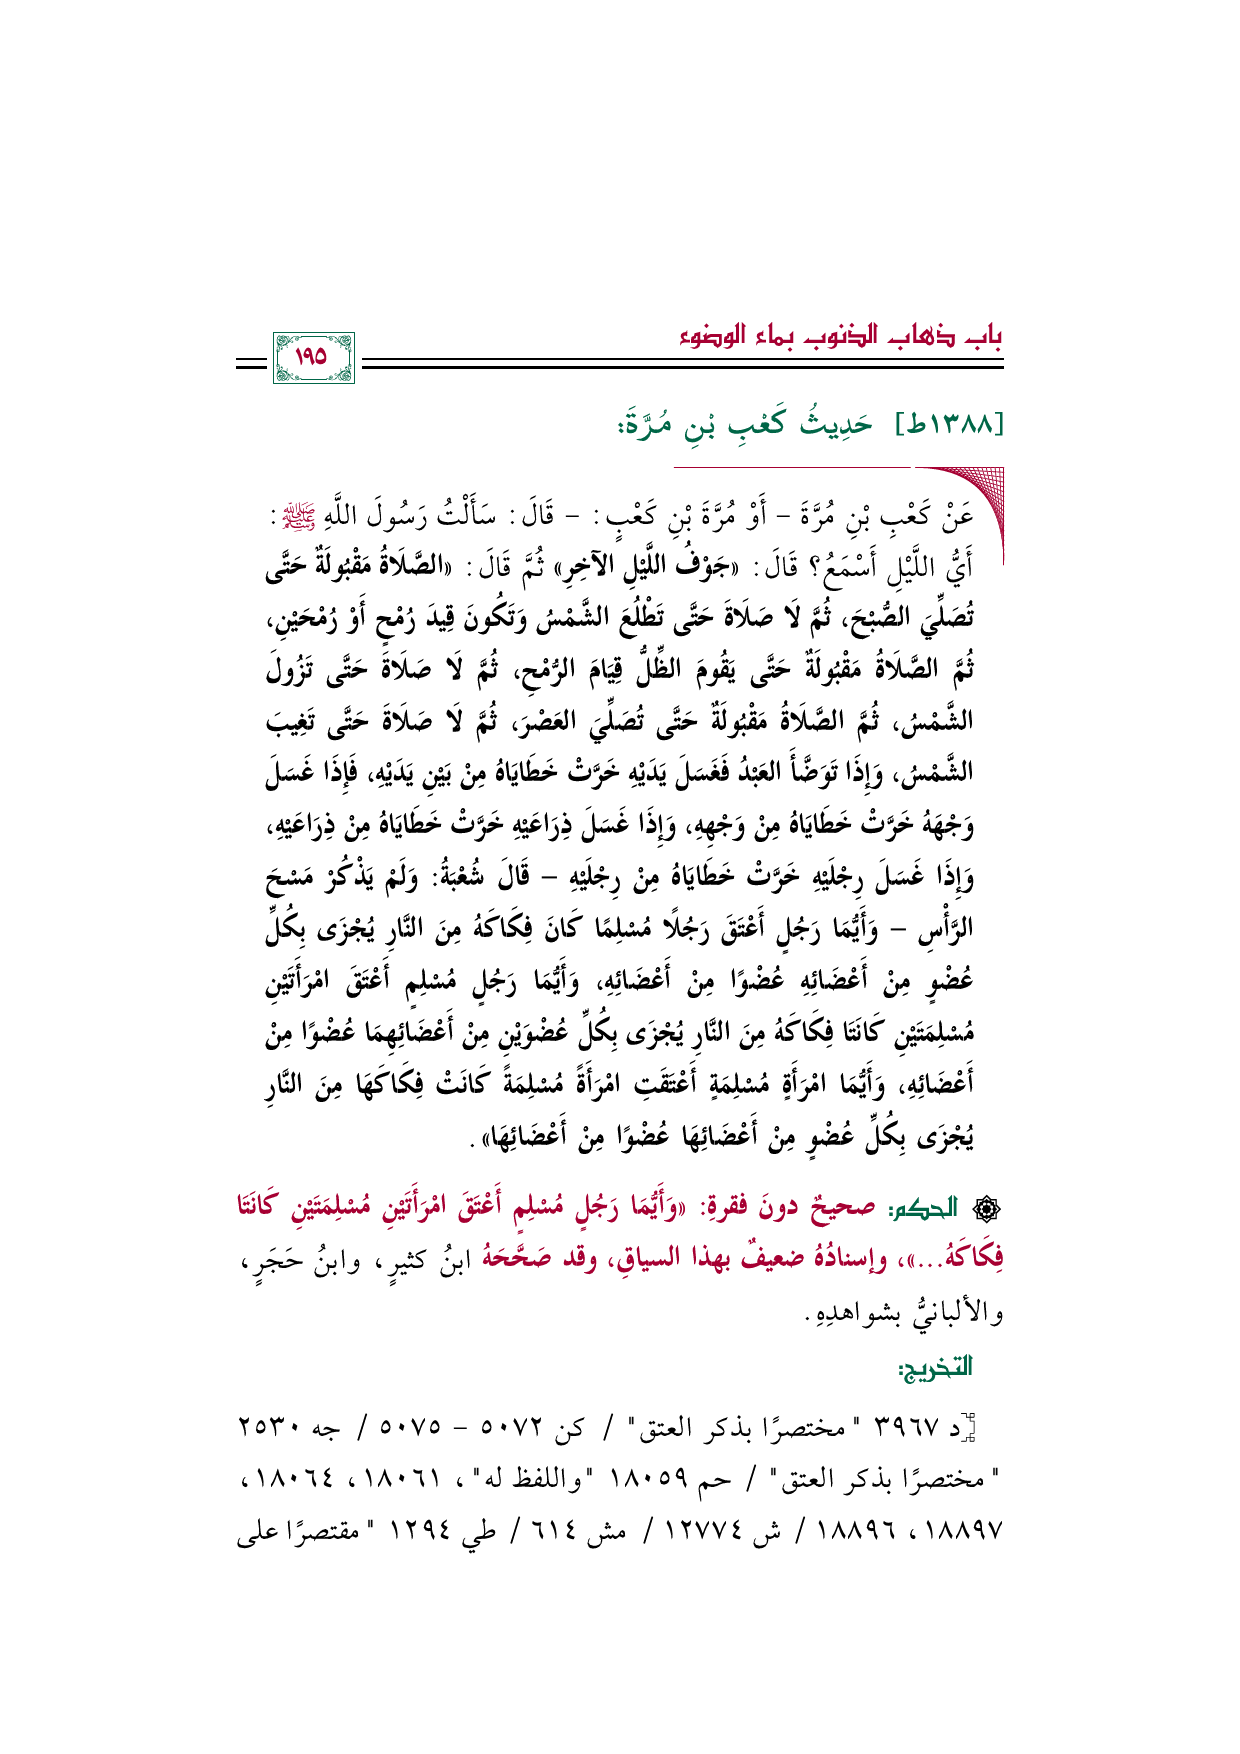 باب ذهاب الذنوب بماء الوضوء
١٩٥
[١٣٨٨ط] حَدِيثُ كَعْبِ بْنِ مُرَّةَ:
عَنْ كَعْبِ بْنِ مُرَّةَ – أَوْ مُرَّةَ بْنِ كَعْبٍ: – قَالَ: سَأَلْتُ رَسُولَ اللَّهِ ﷺ:
أَيُّ اللَّيْلِ أَسْمَعُ؟ قَالَ: «جَوْفُ اللَّيْلِ الآخِرِ» ثُمَّ قَالَ: «الصَّلَاةُ مَقْبُولَةٌ حَتَّى
تُصَلِّيَ الصُّبْحَ، ثُمَّ لَا صَلَاةَ حَتَّى تَطْلُعَ الشَّمْسُ وَتَكُونَ قِيدَ رُمْحٍ أَوْ رُمْحَيْنِ،
ثُمَّ الصَّلَاةُ مَقْبُولَةٌ حَتَّى يَقُومَ الظِّلُّ قِيَامَ الرُّمْحِ، ثُمَّ لَا صَلَاةَ حَتَّى تَزُولَ
الشَّمْسُ، ثُمَّ الصَّلَاةُ مَقْبُولَةٌ حَتَّى تُصَلِّيَ العَصْرَ، ثُمَّ لَا صَلَاةَ حَتَّى تَغِيبَ
الشَّمْسُ، وَإِذَا تَوَضَّأَ العَبْدُ فَغَسَلَ يَدَيْهِ خَرَّتْ خَطَايَاهُ مِنْ بَيْنِ يَدَيْهِ، فَإِذَا غَسَلَ
وَجْهَهُ خَرَّتْ خَطَايَاهُ مِنْ وَجْهِهِ، وَإِذَا غَسَلَ ذِرَاعَيْهِ خَرَّتْ خَطَايَاهُ مِنْ ذِرَاعَيْهِ،
وَإِذَا غَسَلَ رِجْلَيْهِ خَرَّتْ خَطَايَاهُ مِنْ رِجْلَيْهِ – قَالَ شُعْبَةُ: وَلَمْ يَذْكُرْ مَسْحَ
الرَّأْسِ – وَأَيُّمَا رَجُلٍ أَعْتَقَ رَجُلًا مُسْلِمًا كَانَ فِكَاكَهُ مِنَ النَّارِ يُجْزَى بِكُلِّ
عُضْوٍ مِنْ أَعْضَائِهِ عُضْوًا مِنْ أَعْضَائِهِ، وَأَيُّمَا رَجُلٍ مُسْلِمٍ أَعْتَقَ امْرَأَتَيْنِ
مُسْلِمَتَيْنِ كَانَتَا فِكَاكَهُ مِنَ النَّارِ يُجْزَى بِكُلِّ عُضْوَيْنِ مِنْ أَعْضَائِهِمَا عُضْوًا مِنْ
أَعْضَائِهِ، وَأَيُّمَا امْرَأَةٍ مُسْلِمَةٍ أَعْتَقَتِ امْرَأَةً مُسْلِمَةً كَانَتْ فِكَاكَهَا مِنَ النَّارِ
يُجْزَى بِكُلِّ عُضْوٍ مِنْ أَعْضَائِهَا عُضْوًا مِنْ أَعْضَائِهَا».
الحكم: صحيحٌ دونَ فقرةِ: «وَأَيُّمَا رَجُلٍ مُسْلِمٍ أَعْتَقَ امْرَأَتَيْنِ مُسْلِمَتَيْنِ كَانَتَا
فِكَاكَهُ...»، وإسنادُهُ ضعيفٌ بهذا السياقِ، وقد صَحَّحَهُ ابنُ كثيرٍ، وابنُ حَجَرٍ،
والألبانيُّ بشواهدِهِ.
التخريج:
[د ٣٩٦٧ "مختصرًا بذكر العتق" / كن ٥٠٧٢ – ٥٠٧٥ / جه ٢٥٣٠
"مختصرًا بذكر العتق" / حم ١٨٠٥٩ "واللفظ له"، ١٨٠٦١، ١٨٠٦٤،
١٨٨٩٧، ١٨٨٩٦ / ش ١٢٧٧٤ / مش ٦١٤ / طي ١٢٩٤ "مقتصرًا على